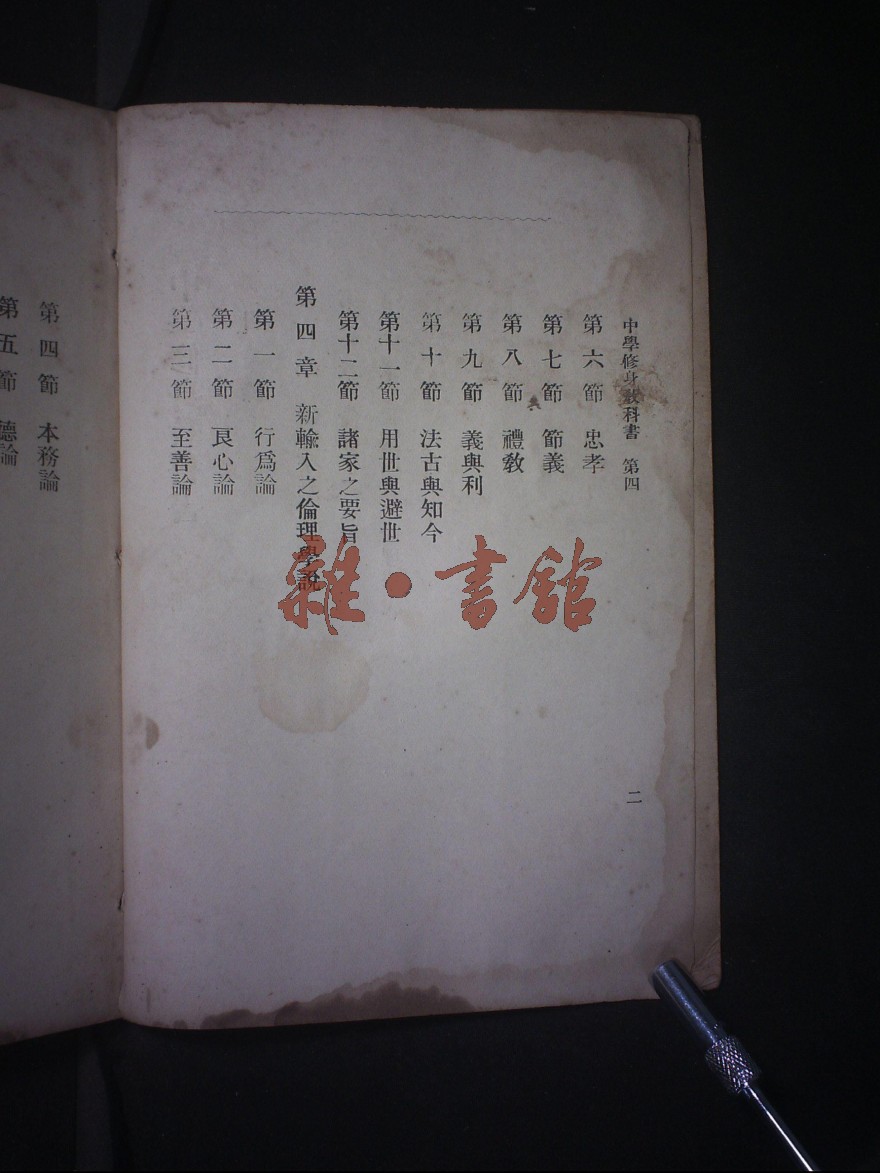 中學修身教科書 第四
第六節 忠孝
第七節 節義
第八節 禮敎
第九節 義與利
第十節 法古與知今
第十一節 用世與避世
第十二節 諸家之要旨
第四章 新輸入之倫理學說
第一節 行爲論
第二節 良心論
第三節 至善論
二
第四節 本務論
第五節 德論
雜·書館